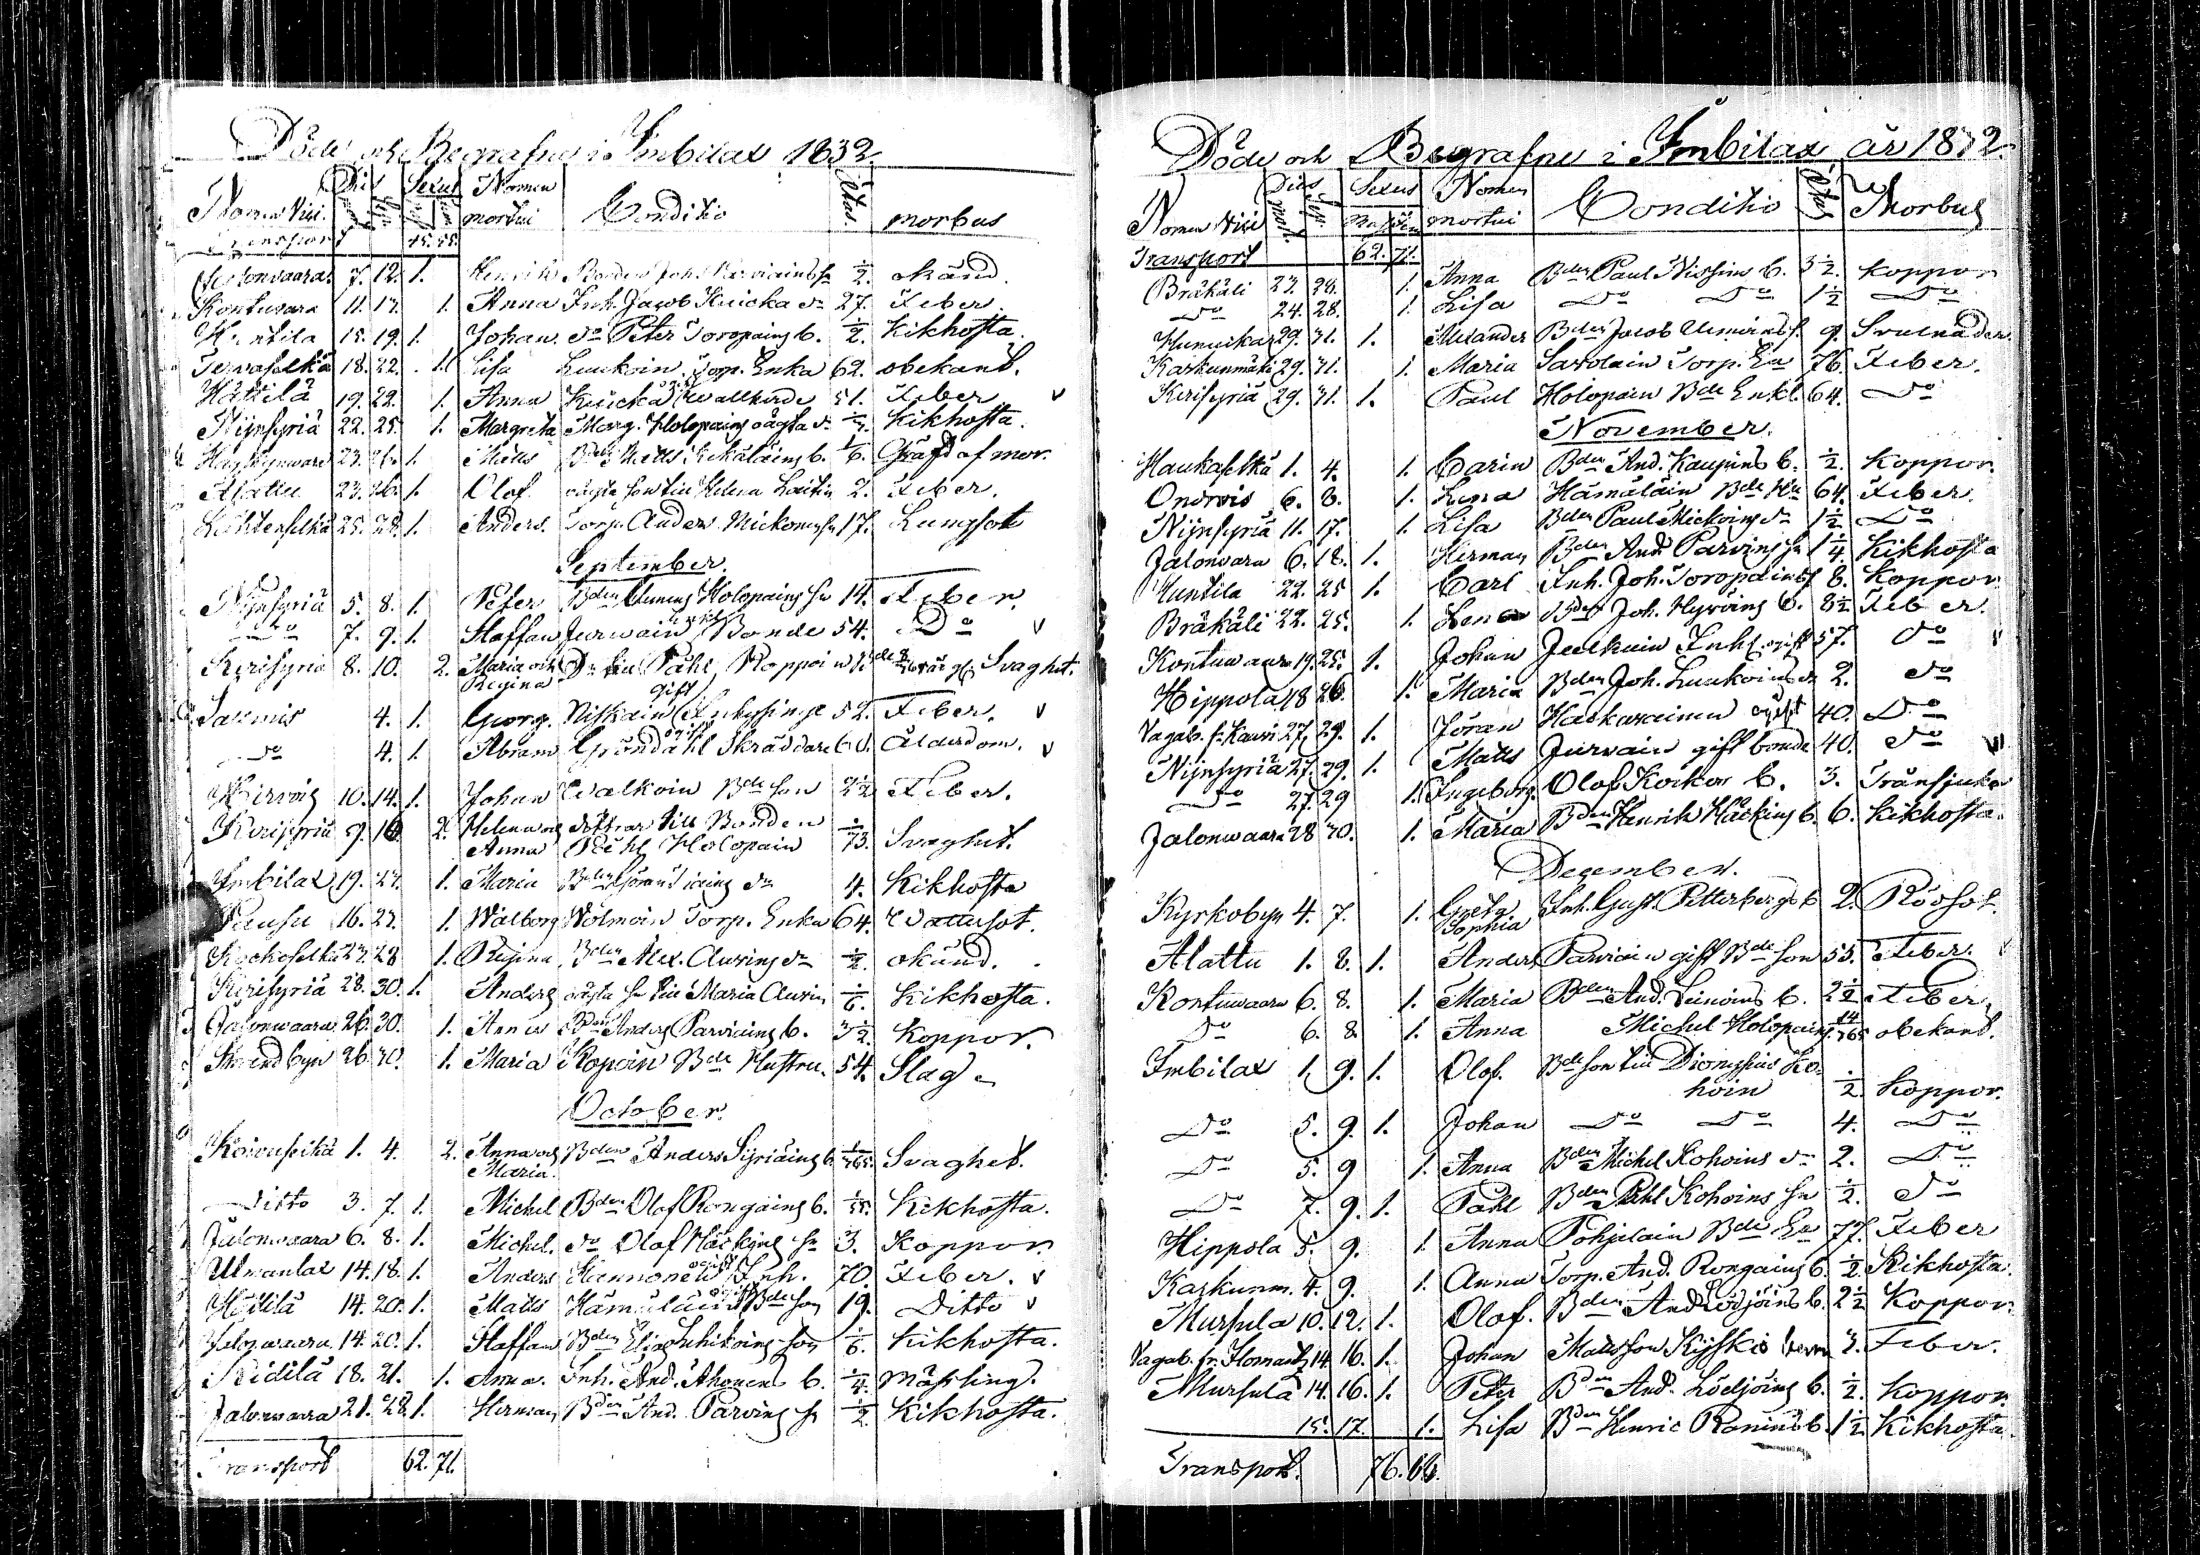 Döde och Begrafne i Imbilax 1832.
Nomen Vici. Dies Sexus Nomen mortui Conditio Ætas. morbus
Transport 45. 55.
7. 12. 1. Henrik ½. okänd
Kontuvara 11. 17. 1. Anna Inh. Jacob Kuicka dr 27. Feber.
Huntila 15. 19. 1. Johan do Peter Toropains b. ½. Kikhosta.
Tervaselkä 18. 22. 1. Lisa Luukoin Torp. Enka 62. obekant.
Hättilä 19. 22. 1. Anna Kuicka ogift Wallhirde 51. Feber v
Nijnsyriä 22. 25. 1. Margreta Marg. Holopains oägta dr Kikhosta.
23. 26. 1. Matts Bden Matts b. 1/6. Qväfd af mor.
Alattu 23. 26. 1. Olof oägta son till Helena Laitin 2. Feber.
Lehtenselkä 25. 28. 1. Anders Torp. Anders Mickons sn 17. Lungsot
September.
Nijnsyriä 5. 8. 1. Peter Bden Clemens Holopains sn 14. Feber.
do 7. 9. 1. Staffan Jurvain gift Bonde 54. Do v
Kirisyriä 8. 10. 2. Maria och Dr till Påhl Roppoin Svaghet.
Regina
Salmis 4. 1. Georg. Niskain gift 52. Feber. v
do 4. 1. Abram Gröndahl ogift Skräddare 60. Ålderdom. v
Hirvois 10. 14. 1. Johan Walkoin Bde son 2½ Feber.
Kirisyriä 9. 10. 2. Helena och döttrar till Bonden
Anna Påhl Holopain Svaghet.
Imbilax 19. 23. 1. Maria Bden Göran dr 4. Kikhosta
Peusu 16. 23. 1. Walborg Wolmoin Torp. Enka 64. Wattusot.
Kockoselkä 23. 28 1. Regina Bden Alex. Auvins dr ½. okänd.
Kirisyriä 28. 30. 1. Anders oägta sn till Maria Auvin 1/6. Kikhosta.
Jalonwaara 26. 30. 1. Anna Bden Anders Parviains b. 3½. Koppor.
Strandbyn 26. 30. 1. Maria Ropoin Bde Hustru. 54. Slag
October.
Koivuselkä 1. 4. 2. Anna och Bden Anders Syriäins b. Svaghet.
Maria.
Ditto 3. 7. 1. Michel Bden Olof Rongains b. Kikhosta.
Jalonwaara 6. 8. 1. Michel. do Olof Häckins sn 3. Koppor.
Uomanlax 14. 18. 1. Anders Hannonen Inh. 70. Feber. v
Hättilä 14. 20. 1. Matts Hämäläin ogift Bde son 19. Ditto v
Jalonwaara 14. 20. 1. Staffan Bden Elias son 1/6. Kikhosta.
Kitilä 18. 21. 1. Anna. Inh. And. Ahonens b. ¼. mässling.
Jalonwaara 21. 28. 1. Herman Bden And. Parvins sn ½. Kikhosta.
Transport 62. 71.
Döde och Begrafne i Imbilax år 1832.
Nomen Vici Dies Sexus Nomen mortui Conditio Ætas Morbus
Transport 62. 71.
Bräkäli 23. 28. 1. Anna Bden Paul Nissins b. 3½. Koppor
Do 24. 28. 1. Lisa Do Do 1½ Do
29. 31. 1. Alexander Bden Jacob 9. Svulnader
Karkunmäki 29. 31. 1. Maria Savolain Torp. Ea 76. Feber.
Kirisyriä 29. 31. 1. Paul Holopain Bde Enkl. 64. Do
November.
Haukaselkä 1. 4. 1. Carin Bden And. Kaupins b. ½. Koppor.
Ondrois 6. 8. 1. Lena Hämäläin Bde Hu 64. Feber.
Nijnsyriä 11. 17. 1. Lisa Bden Paul Mickoins dr 1½ Do
Jalonvara 6. 18. 1. Herman Bden And. Parvins sn 1¼ Kikhosta
Huntila 22. 25 1. Carl Inh. Joh. Toropains s 8. Koppor
Bräkäli 22. 25. 1. Lena Bden Joh. Hyvöins b. 8½ Feber.
Kontuwaara 19. 25. 1. Johan Juckain Inh. gift 57. Do v
Hippola 18 26. 1. Maria Bden Joh. Luukoins dr 2. Do
Vagab. fr. Kauvi 27. 29. 1. Jöran Kaskuvainen ogift 40. Do
Nijnsyriä 27. 29. 1. Matts Jurvain gift bonde 40. Do v
Do 27. 29 1. Ingeborg Olof Korkon b. 3. Trånsjuka
Jalonwaara 28 30. 1. Maria Bden Henrik Häckins b. 6. Kikhosta.
December.
Kyrkobyn 4. 7. 1. Greta Inh. Gust. Petterbergs b 2. Rödsot.
Sophia
Alattu 1. 8. 1. Anders Parviain gift Bde son 55. Feber. v
Kontuwaara 6. 8. 1. Maria Bden And. Leinoins b. 2½ Feber.
Do 6. 8 1. Anna Michel Holopains 14/365 obekant.
Imbilax 1. 9. 1. Olof. Bde son till Dionysius Ko-
hoin ½ Koppor.
Do 5. 9. 1. Johan Do Do 4. Do
Do 5. 9 1. Anna Bden Michel Kohoins dr 2. Do
Do 7. 9. 1. Påhl Bden Påhl Kohoins sn ½. Do
Hippola 5. 9. 1. Anna Pohjolain Bde Ea 77. Feber
Karkunm. 4. 9. 1. Anna Torp. And. Rongains b. ½. Kikhosta.
Mursula 10. 12. 1. Olof. Bden And. Lödjöins b. 2½ Koppor.
Vagab. fr. Ilomants 14. 16. 1. Johan Mattsson Kyskis barn 3. Feber.
Mursula 14. 16. 1. Peter Bden And. Lödjöins b. ½. Koppor.
15. 17. 1. Lisa Bden Henric Ronins b. 1½ Kikhosta.
Transport. 76. 88.